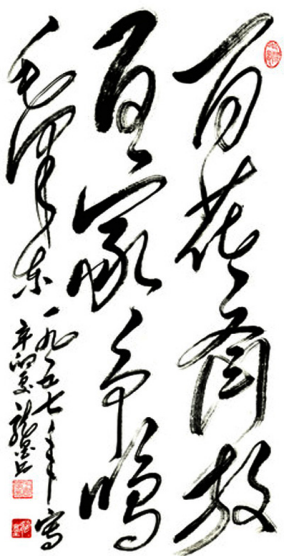 百花齐放
百家争鸣
毛泽东 一九五七年写
辛卯夏